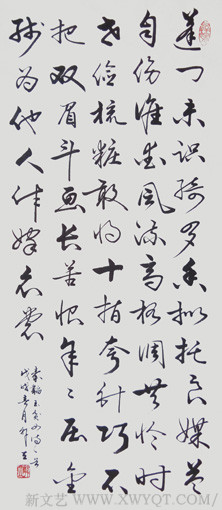 蓬门未识绮罗香拟托良媒益
自伤谁爱风流高格调共怜时
世俭梳粧敢将十指夸针巧不
把双眉斗画长苦恨年々压金
线为他人作嫁衣裳
秦韬玉贫女诗一首
新文艺 WWW.XWYQT.COM